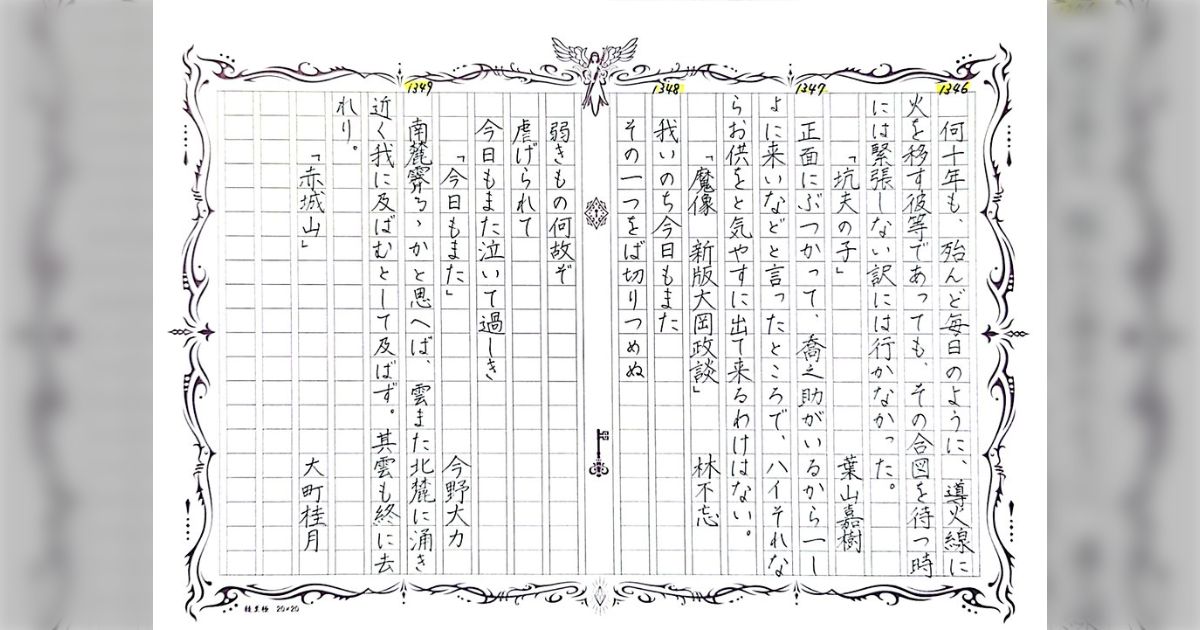 1346
何十年も、殆んど毎日のように、導火線に
火を移す彼等であっても、その合図を待つ時
には緊張しない訳には行かなかった。
「坑夫の子」 葉山嘉樹
1347
正面にぶつかって、喬之助がいるから一し
ょに来いなどと言ったところで、ハイそれな
らお供をと気やすに出て来るわけはない。
「魔像 新版大岡政談」 林不忘
1348
我いのち今日もまた
その一つをば切りつめぬ
弱きもの何故ぞ
虐げられて
今日もまた泣いて過しき
「今日もまた」 今野大力
1349
南麓霽るゝかと思へば、雲また北麓に涌き
近く我に及ばむとして及ばず。其雲も終に去
れり。
「赤城山」 大町桂月
20×20